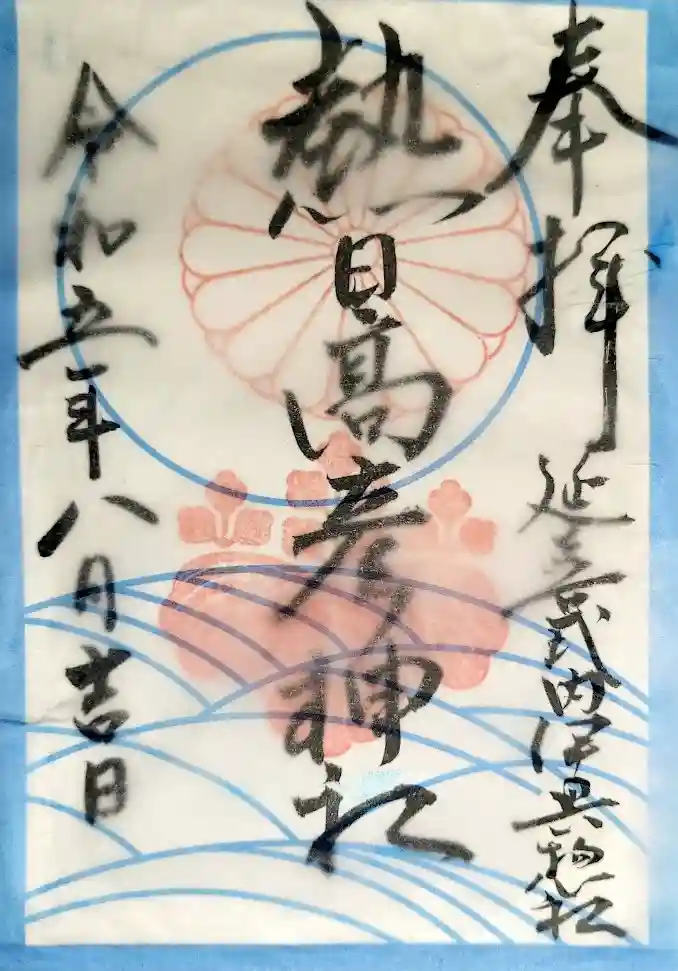 奉拝 延喜式内伊具惣社
熱日高彦神社
令和五年八月吉日